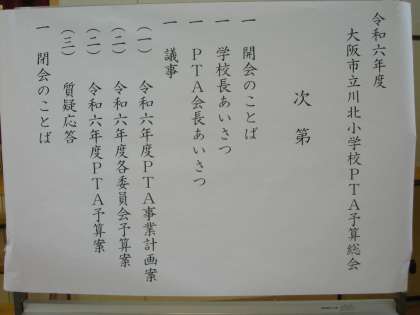 令和六年度
大阪市立川北小学校ＰＴＡ予算総会
次第
一　開会のことば
一　学校長あいさつ
一　ＰＴＡ会長あいさつ
一　議事
（一）　令和六年度ＰＴＡ事業計画案
（二）　令和六年度各委員会予算案
（二）　令和六年度ＰＴＡ予算案
（三）　質疑応答
一　閉会のことば